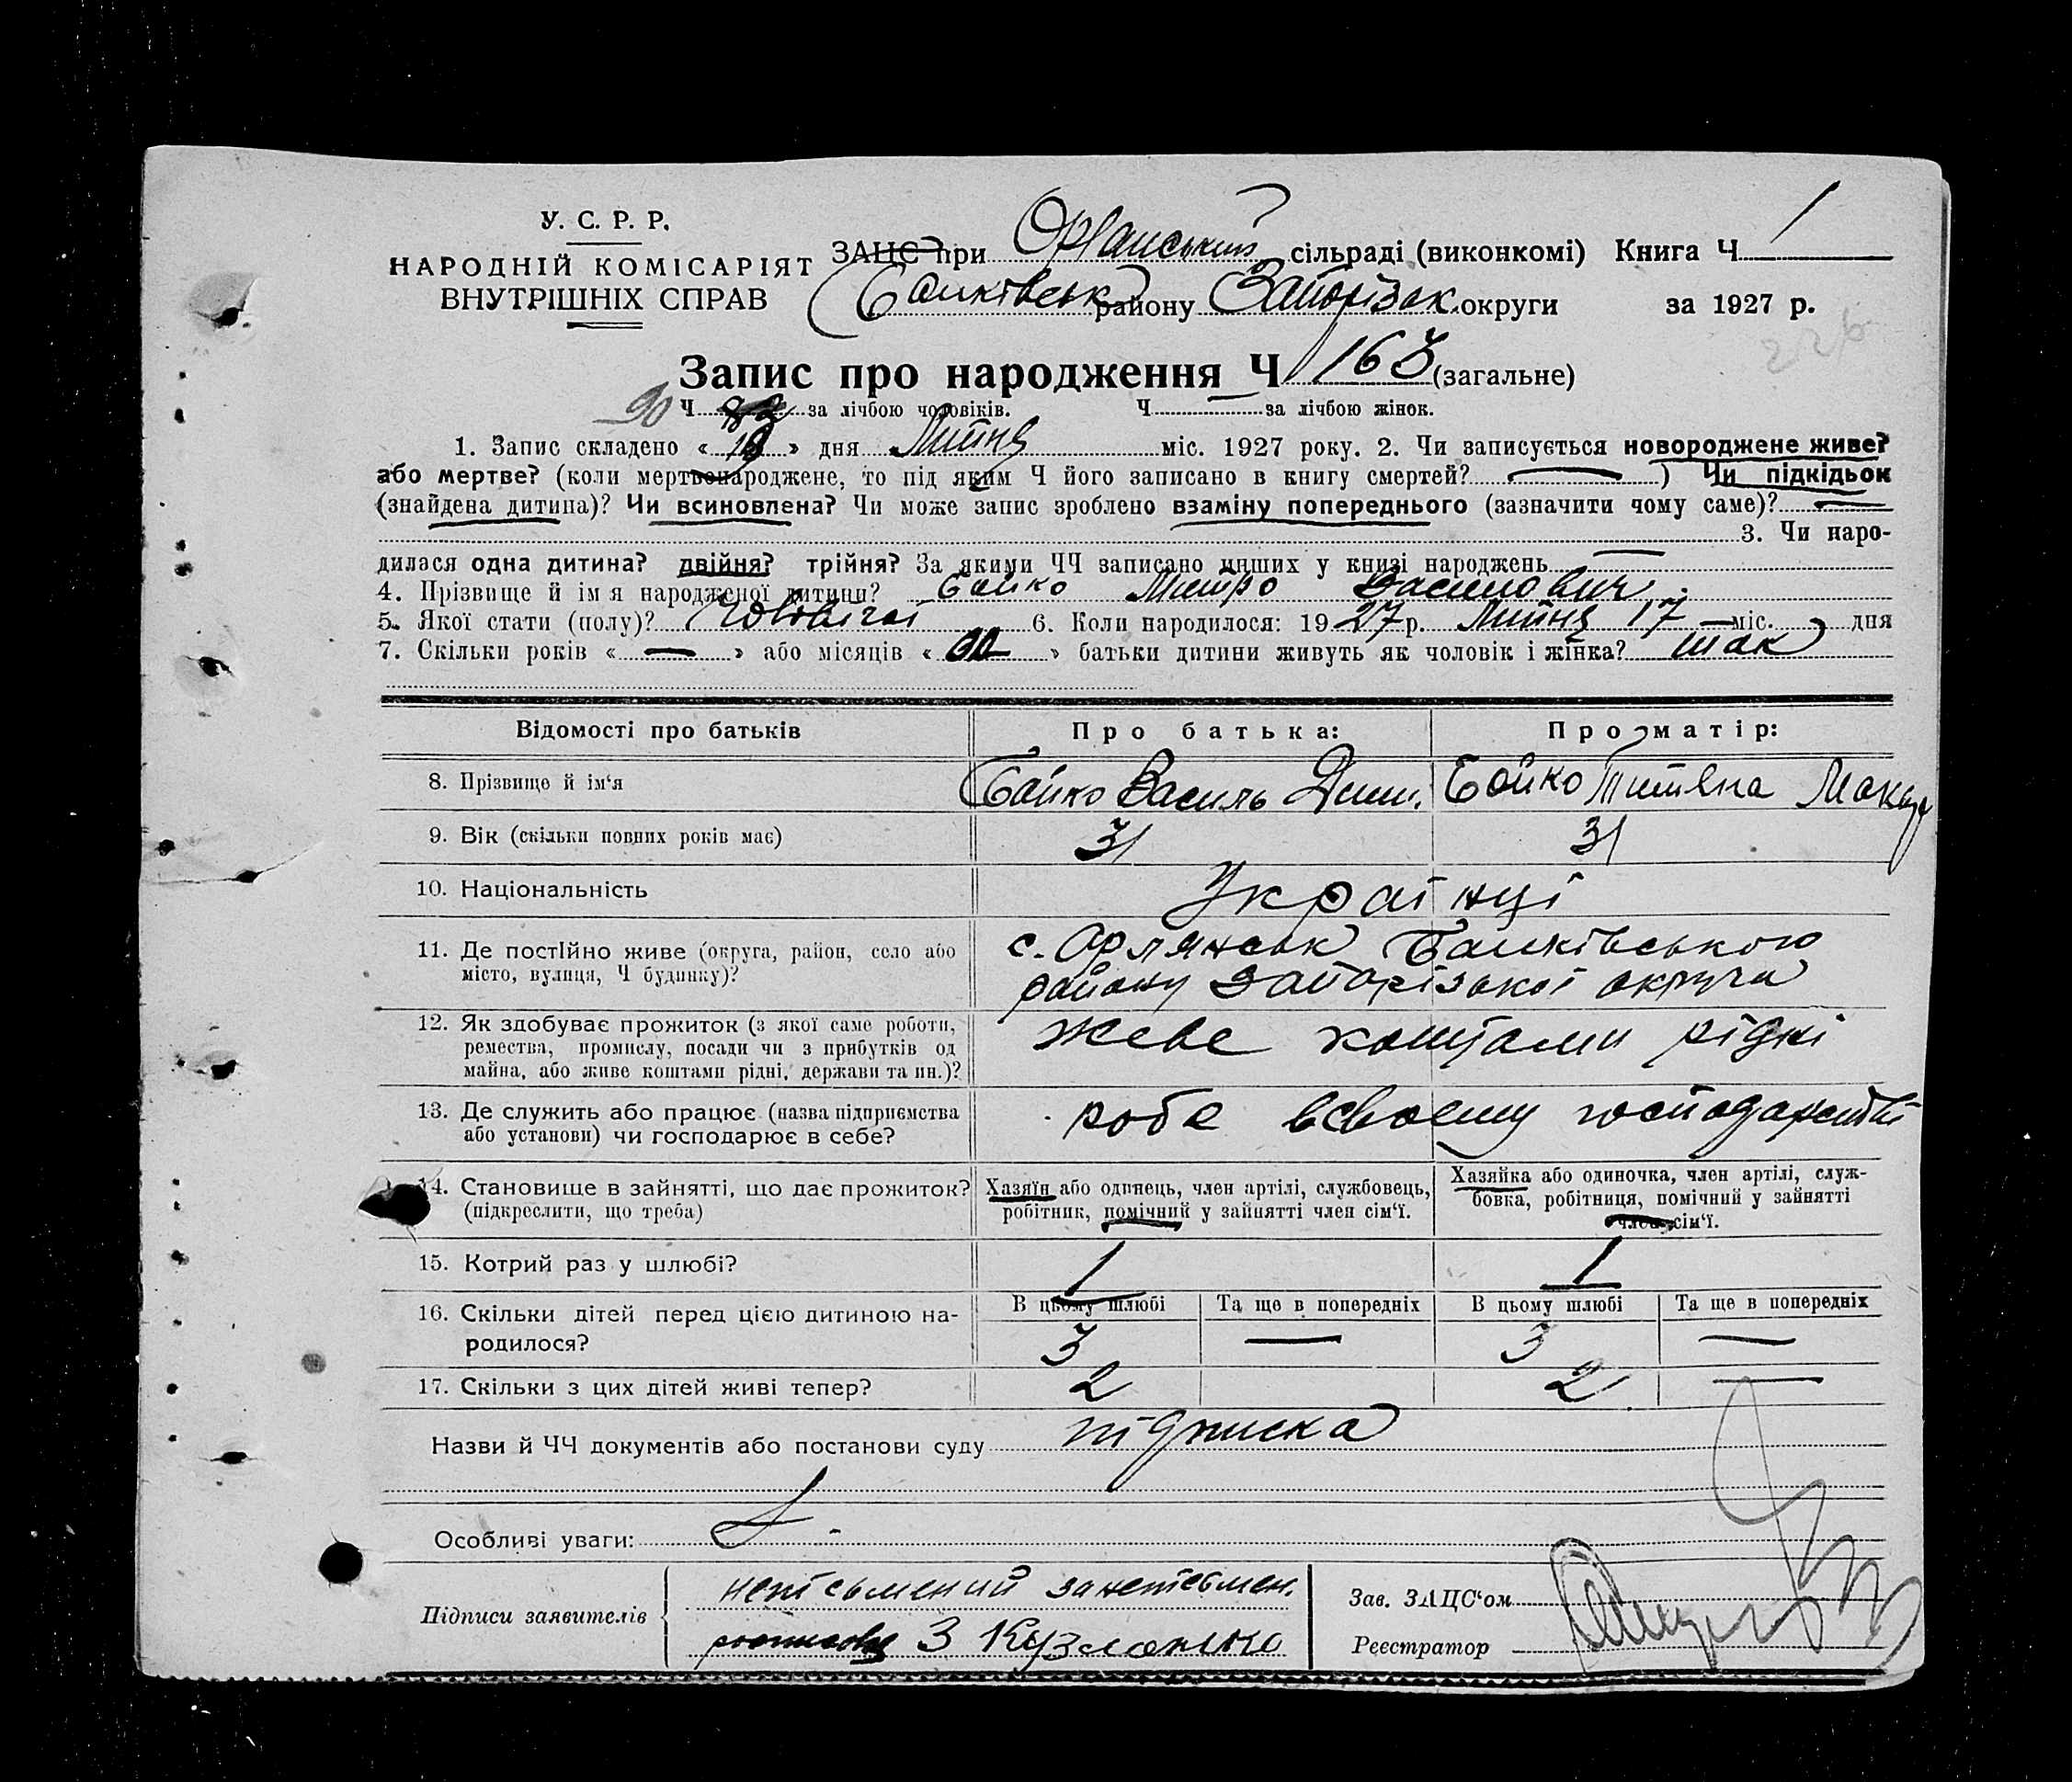 У. С. Р. Р.
НАРОДНІЙ КОМІСАРІЯТ
ВНУТРІШНІХ СПРАВ
ЗАЦС при Орлянський сільраді (виконкомі) Книга Ч 1
району Запорізьк. округи за 1927 р.
226
Запис про народження Ч 163 (загальне)
90 Ч за лічбою чоловіків. Ч за лічбою жінок.
1. Запис складено « » дня Липня міс. 1927 року. 2. Чи записується новороджене живе?
або мертве? (коли мертвонароджене, то під яким Ч його записано в книгу смертей? — ) Чи підкідьок
(знайдена дитина)? Чи всиновлена? Чи може запис зроблено взаміну попереднього (зазначити чому саме)? —
3. Чи наро-
дилася одна дитина? двійня? трійня? За якими ЧЧ записано инших у книзі народжень —
4. Прізвище й ім'я народженої дитини? Бойко Митро Василович.
5. Якої стати (полу)? 6. Коли народилося: 1927 р. Липня 17 міс. дня
7. Скільки років « — » або місяців « » батьки дитини живуть як чоловік і жінка? так
Відомості про батьків Про батька: Про матір:
8. Прізвище й ім'я Бойко Василь Дми. Бойко Титяна Макар
9. Вік (скільки повних років має) 31 31
10. Національність Українці
11. Де постійно живе (округа, район, село або с. Орлянськ
місто, вулиця, Ч будинку)? району Запорізької округи
12. Як здобуває прожиток (з якої саме роботи, живе коштами рідні
ремества, промислу, посади чи з прибутків од
майна, або живе коштами рідні, держави та ин.)?
13. Де служить або працює (назва підприємства робе всвоему господарстві
або установи) чи господарює в себе?
14. Становище в зайнятті, що дає прожиток? Хазяїн або одинець, член артілі, службовець, Хазяйка або одиночка, член артілі, служ-
(підкреслити, що треба) робітник, помічний у зайнятті член сім'ї. бовка, робітниця, помічний у зайнятті
член сім'ї.
15. Котрий раз у шлюбі? 1 1
16. Скільки дітей перед цією дитиною на- В цьому шлюбі Та ще в попередніх В цьому шлюбі Та ще в попередніх
родилося? 3 — 3 —
17. Скільки з цих дітей живі тепер? 2 2 —
Назви й ЧЧ документів або постанови суду підписка
Особливі уваги:
Підписи заявителів неписьмений занеписьмен.
З Кузменко
Зав. ЗАЦС'ом
Реєстратор